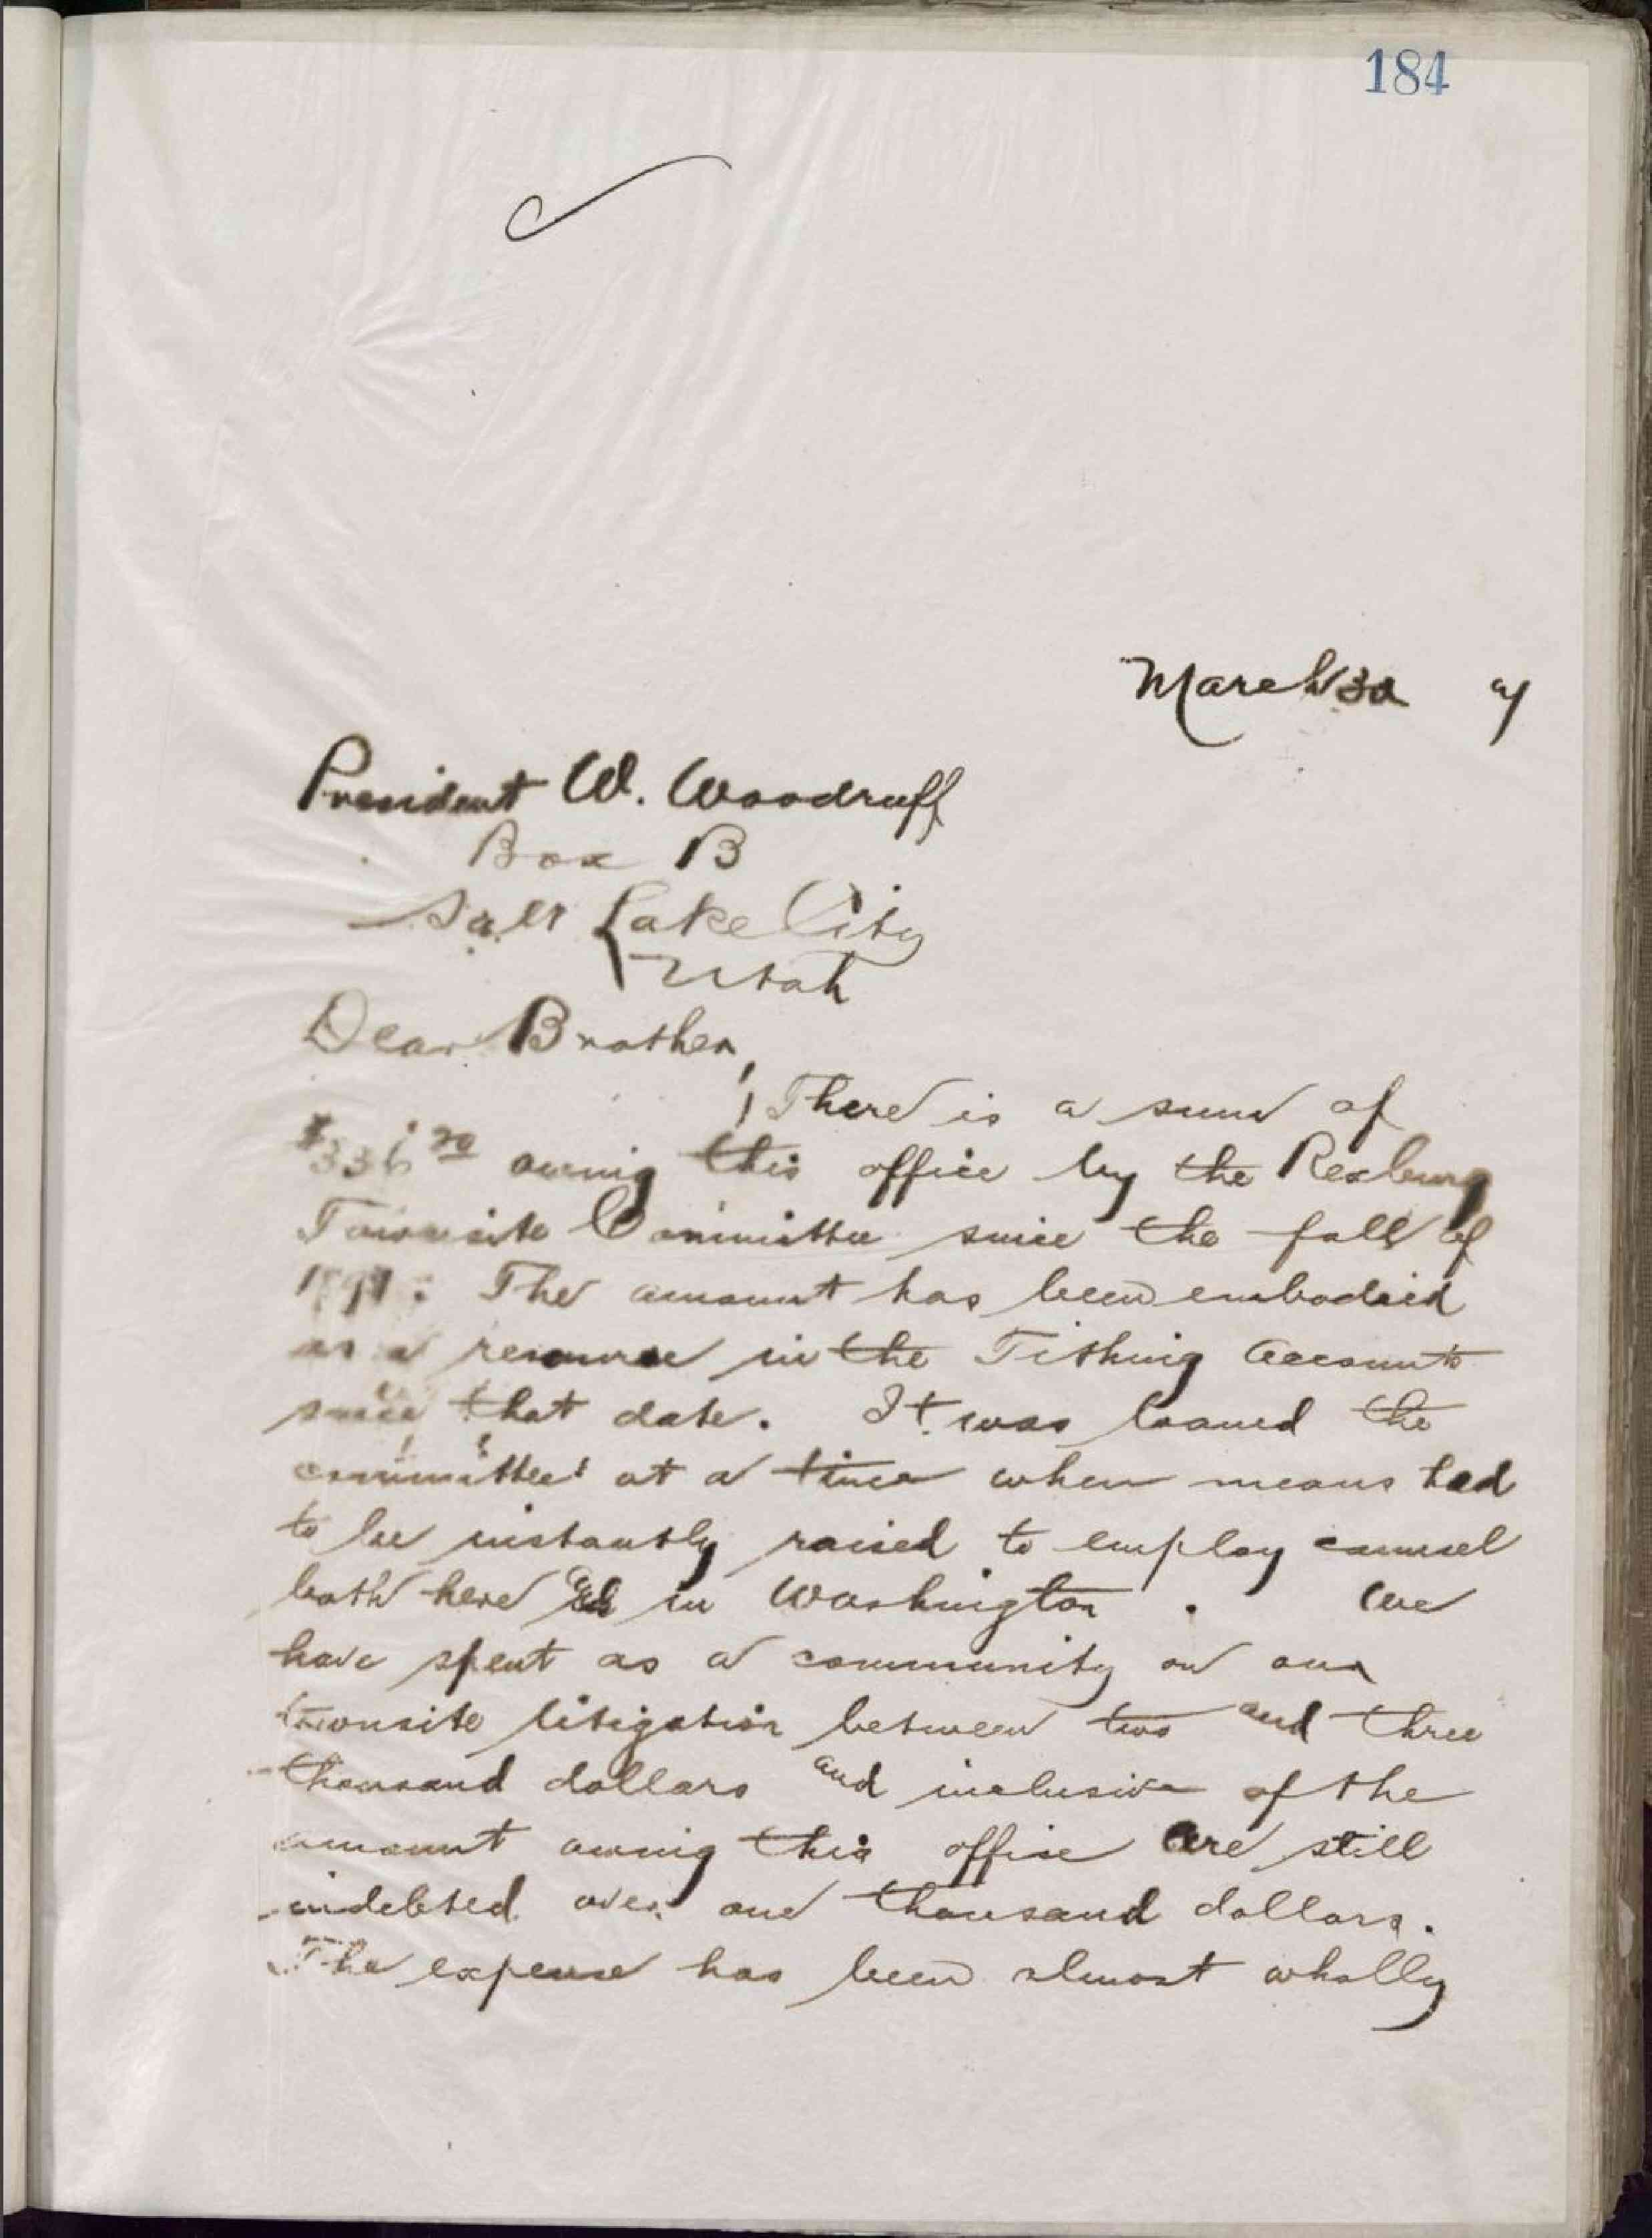 184
March 30
President W. Woodruff
Box B
Salt Lake City
Utah
Dear Brother,
There is a sum of
owing this office by the Rexburg
Townsite Committee since the fall of
The amount has been embodied
as a resource in the Tithing accounts
since that date. It was loaned the
committee at a time when means had
to be instantly raised to employ counsel
both here and in Washington. We
have spent as a community on our
townsite litigation between two and three
thousand dollars and inclusive of the
amount owing this office are still
indebted over one thousand dollars.
The expense has been almost wholly